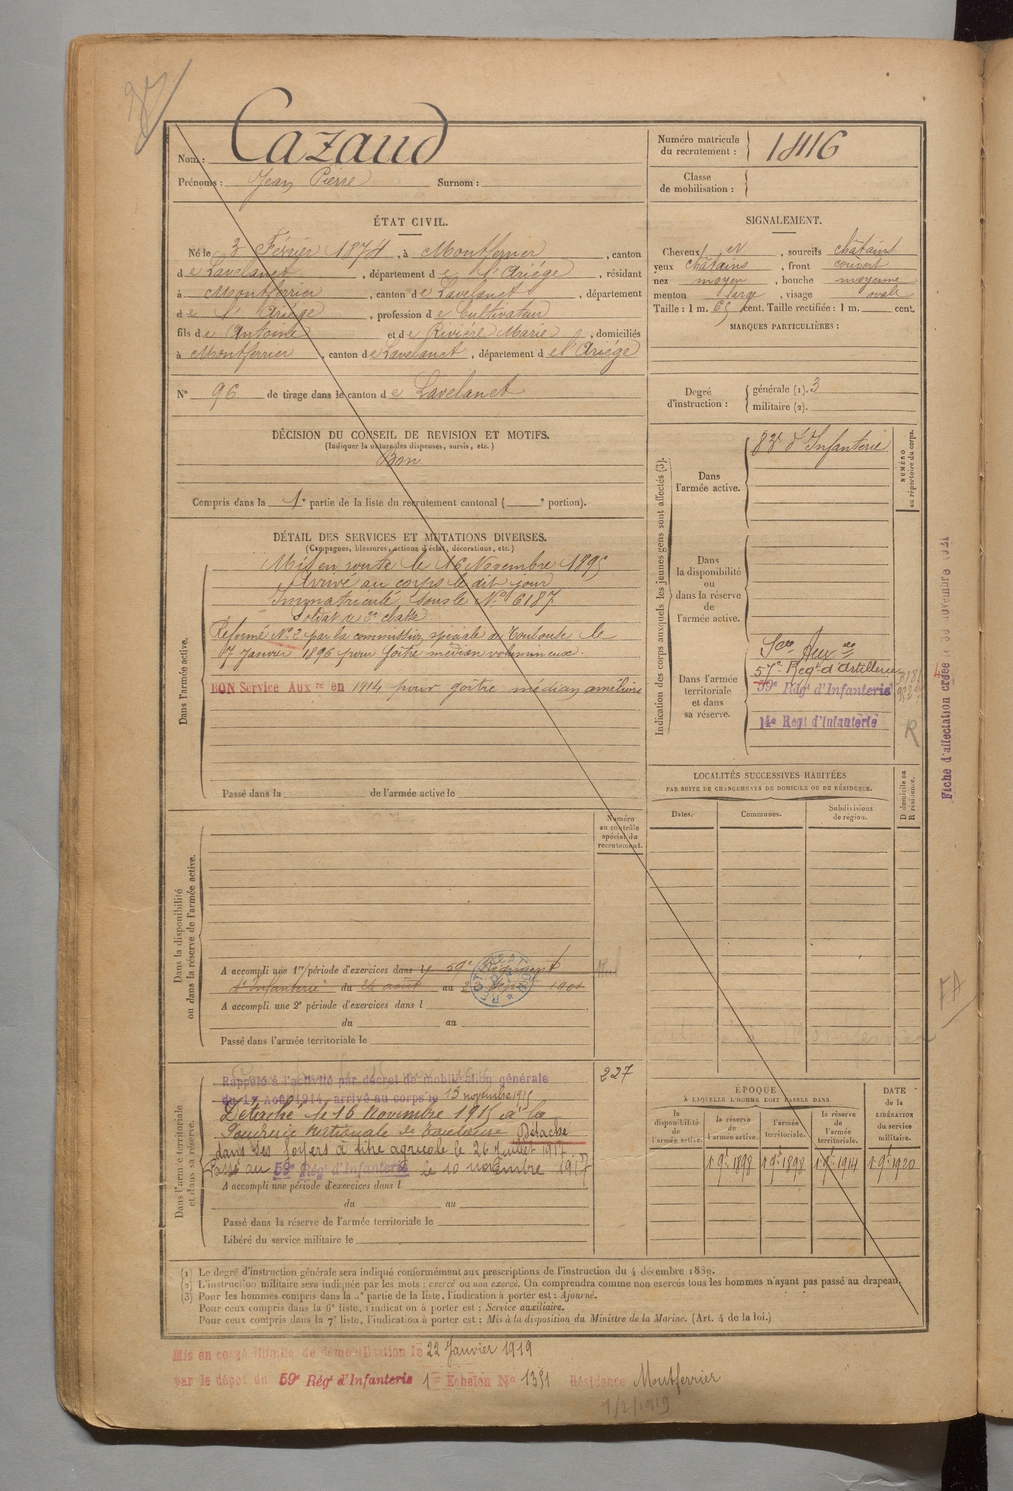 Nom : Cazaud
Prénoms : Jean Pierre Surnom :
Numéro matricule du recrutement : 1416
Classe de mobilisation :
ÉTAT CIVIL.
Né le 3 Février 1874, à Montferrier, canton
de Lavelanet, département de l'Ariége, résidant
à Montferrier, canton de Lavelanet, département
de l'Ariége, profession de Cultivateur
fils de Antoine et de Rivière Marie, domiciliés
à Montferrier, canton de Lavelanet, département de l'Ariége
N° 96 de tirage dans le canton de Lavelanet
DÉCISION DU CONSEIL DE REVISION ET MOTIFS.
(Indiquer la nature des dispenses, sursis, etc.)
Bon
Compris dans la 1e partie de la liste du recrutement cantonal ( e portion).
SIGNALEMENT.
Cheveux et, sourcils châtains
yeux châtains, front couvert
nez moyen, bouche moyenne
menton large, visage ovale
Taille : 1 m. 65 cent. Taille rectifiée : 1 m. cent.
MARQUES PARTICULIÈRES :
Degré d'instruction :
générale (1). 3
militaire (2).
DÉTAIL DES SERVICES ET MUTATIONS DIVERSES.
(Campagnes, blessures, actions d'éclat, décorations, etc.)
Dans l'armée active.
Mis en route le 16 Novembre 1895
Arrivé au corps le dit jour
Immatriculé sous le N° 6187
Soldat de 2e classe
Réformé N° 2 par la commission spéciale de Toulouse le
17 Janvier 1896 pour goître médian volumineux.
BON Service Aux re en 1914 pour goître médian
Passé dans la de l'armée active le
Indication des corps auxquels les jeunes gens sont affectés (3).
NUMÉRO au répertoire du corps.
Dans l'armée active.
83e d'Infanterie
Dans la disponibilité ou dans la réserve de l'armée active.
Dans l'armée territoriale et dans sa réserve.
57e Régt d'Artillerie
59e Régt d'Infanterie
14e Régt d'Infanterie
R
Fiche d'affectation créée le 30 novembre 1921
LOCALITÉS SUCCESSIVES HABITÉES
PAR SUITE DE CHANGEMENTS DE DOMICILE OU DE RÉSIDENCE.
D domicile ou R résidence.
Dates.
Communes.
Subdivisions de région.
Numéro au contrôle spécial du recrutement.
Dans la disponibilité ou dans la réserve de l'armée active.
A accompli une 1re période d'exercices dans le 59e Régiment
d'Infanterie du 26 août au
A accompli une 2e période d'exercices dans l
du au
Passé dans l'armée territoriale le
Dans l'armée territoriale et dans sa réserve.
227
Rappelé à l'activité par décret de mobilisation générale
du 1er Août 1914, arrivé au corps le 15 novembre 1915
Détaché le 16 Novembre 1915 à la
Poudrerie Nationale de Toulouse Détaché
dans ses foyers à titre agricole le 26 Juillet 1917
Passé au 59e Régt d'Infanterie le 10 novembre 1917
A accompli une période d'exercices dans l
du au
Passé dans la réserve de l'armée territoriale le
Libéré du service militaire le
ÉPOQUE
À LAQUELLE L'HOMME DOIT PASSER DANS
la disponibilité de l'armée active.
la réserve de l'armée active.
l'armée territoriale.
la réserve de l'armée territoriale.
DATE de la LIBÉRATION du service militaire.
1 9e 1898
1 9e 1898
1 9e 1914
1 9e 1920
FA
(1) Le degré d'instruction générale sera indiqué conformément aux prescriptions de l'instruction du 4 décembre 1889.
(2) L'instruction militaire sera indiquée par les mots : exercé ou non exercé. On comprendra comme non exercés tous les hommes n'ayant pas passé au drapeau.
(3) Pour les hommes compris dans la 5e partie de la liste, l'indication à porter est : Ajourné.
Pour ceux compris dans la 6e liste, l'indication à porter est : Service auxiliaire.
Pour ceux compris dans la 7e liste, l'indication à porter est : Mis à la disposition du Ministre de la Marine. (Art. 4 de la loi.)
Mis en congé illimité de démobilisation le 22 Janvier 1919
par le dépôt du 59e Régt d'Infanterie 1er Echelon N° 1351 Résidence Montferrier
1/2/1919